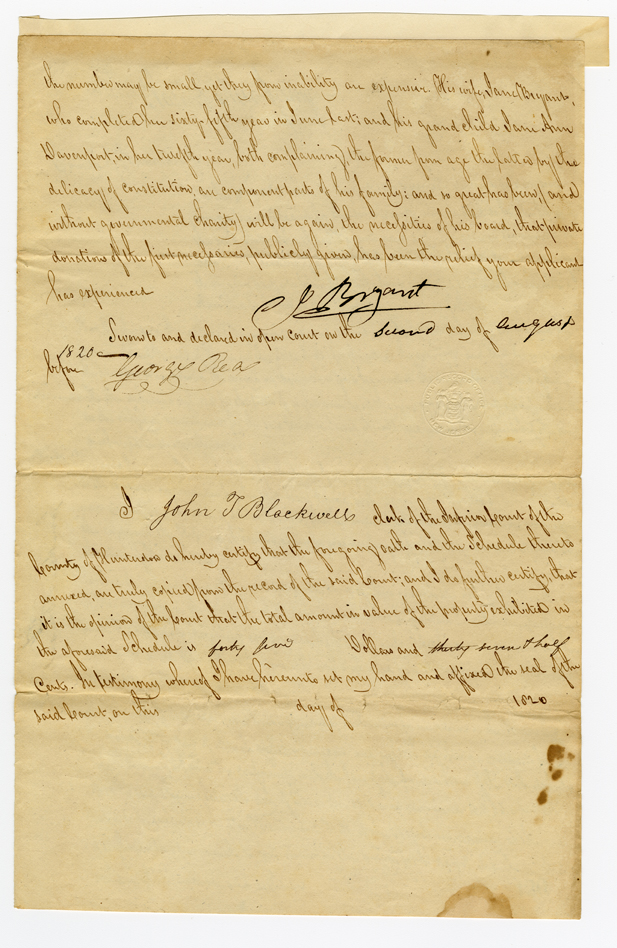 the number may be small, yet they from inability are expensive. His wife, Jane Bryant,
who completed her sixty fifth year in June last; and his grand child Jane Ann
Davenport, in her twelfth year, both complaining, the former from age the latter from the
delicacy of constitution, are component parts of his family; and so great has been, (and
without governmental charity) will be again, the necessities of his board, that private
donations of the first necessaries, publicly given, has been the relief your applicant
has experienced
J Bryant
Sworn to and declared in open court on the second day of August
1820
before George Rea
I John T Blackwell clerk of the Inferior Court of the
County of Hunterdon do hereby certify that the foregoing oath and the Schedule thereto
annexed, are truly copied from the record of the said Court; and I do further certify, that
it is the opinion of the Court that the total amount in value of the property exhibited in
the aforesaid Schedule is forty five Dollars and thirty seven & half
Cents. In testimony whereof I have hereunto set my hand and affixed the seal of the
said Court, on this day of 1820